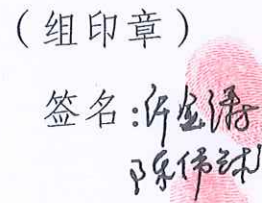 （组印章）
签名:许金涛
陈伟林